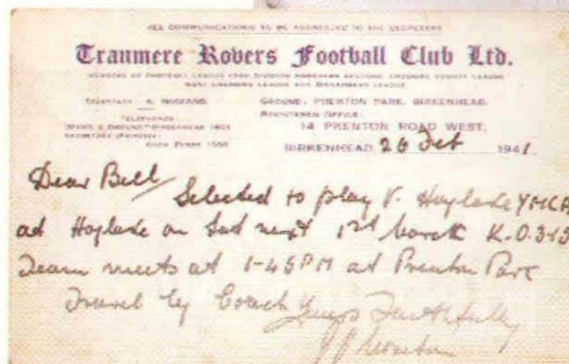 ALL COMMUNICATIONS TO BE ADDRESSED TO THE SECRETARY
Tranmere Rovers Football Club Ltd.
MEMBERS OF FOOTBALL LEAGUE
SECRETARY: A.
GROUND: PRENTON PARK, BIRKENHEAD.
TELEPHONES:
REGISTERED OFFICE:
14 PRENTON ROAD WEST,
BIRKENHEAD, 26 Feb 1941.
Dear Bill
Selected to play V. Hoylake YMCA
at Hoylake on Sat next 1st March K.O. 3-15
Team meets at 1-45PM at Prenton Park
Travel by Coach Yours Faithfully